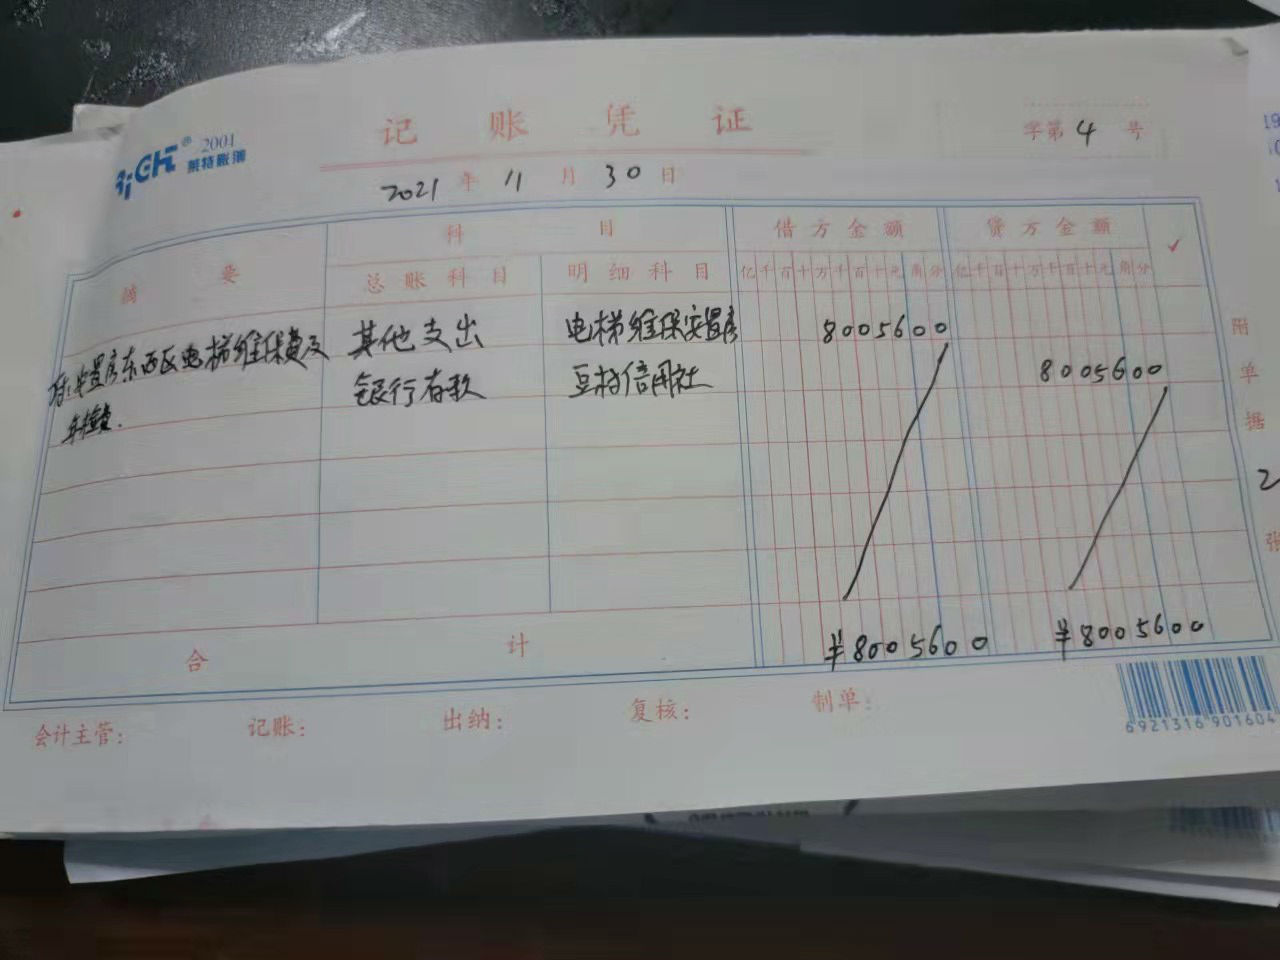 记账凭证
2001
莱特账簿
字第 4 号
2021 年 11 月 30 日
摘要 科目 借方金额 贷方金额 ✓
总账科目 明细科目 亿千百十万千百十元角分 亿千百十万千百十元角分
安置房东西区电梯维保费及 其他支出 电梯维保安置房 8005600
年检费. 银行存款 豆村信用社 8005600
合计 ¥8005600 ¥8005600
附单据 2 张
会计主管: 记账: 出纳: 复核: 制单:
6921316901604